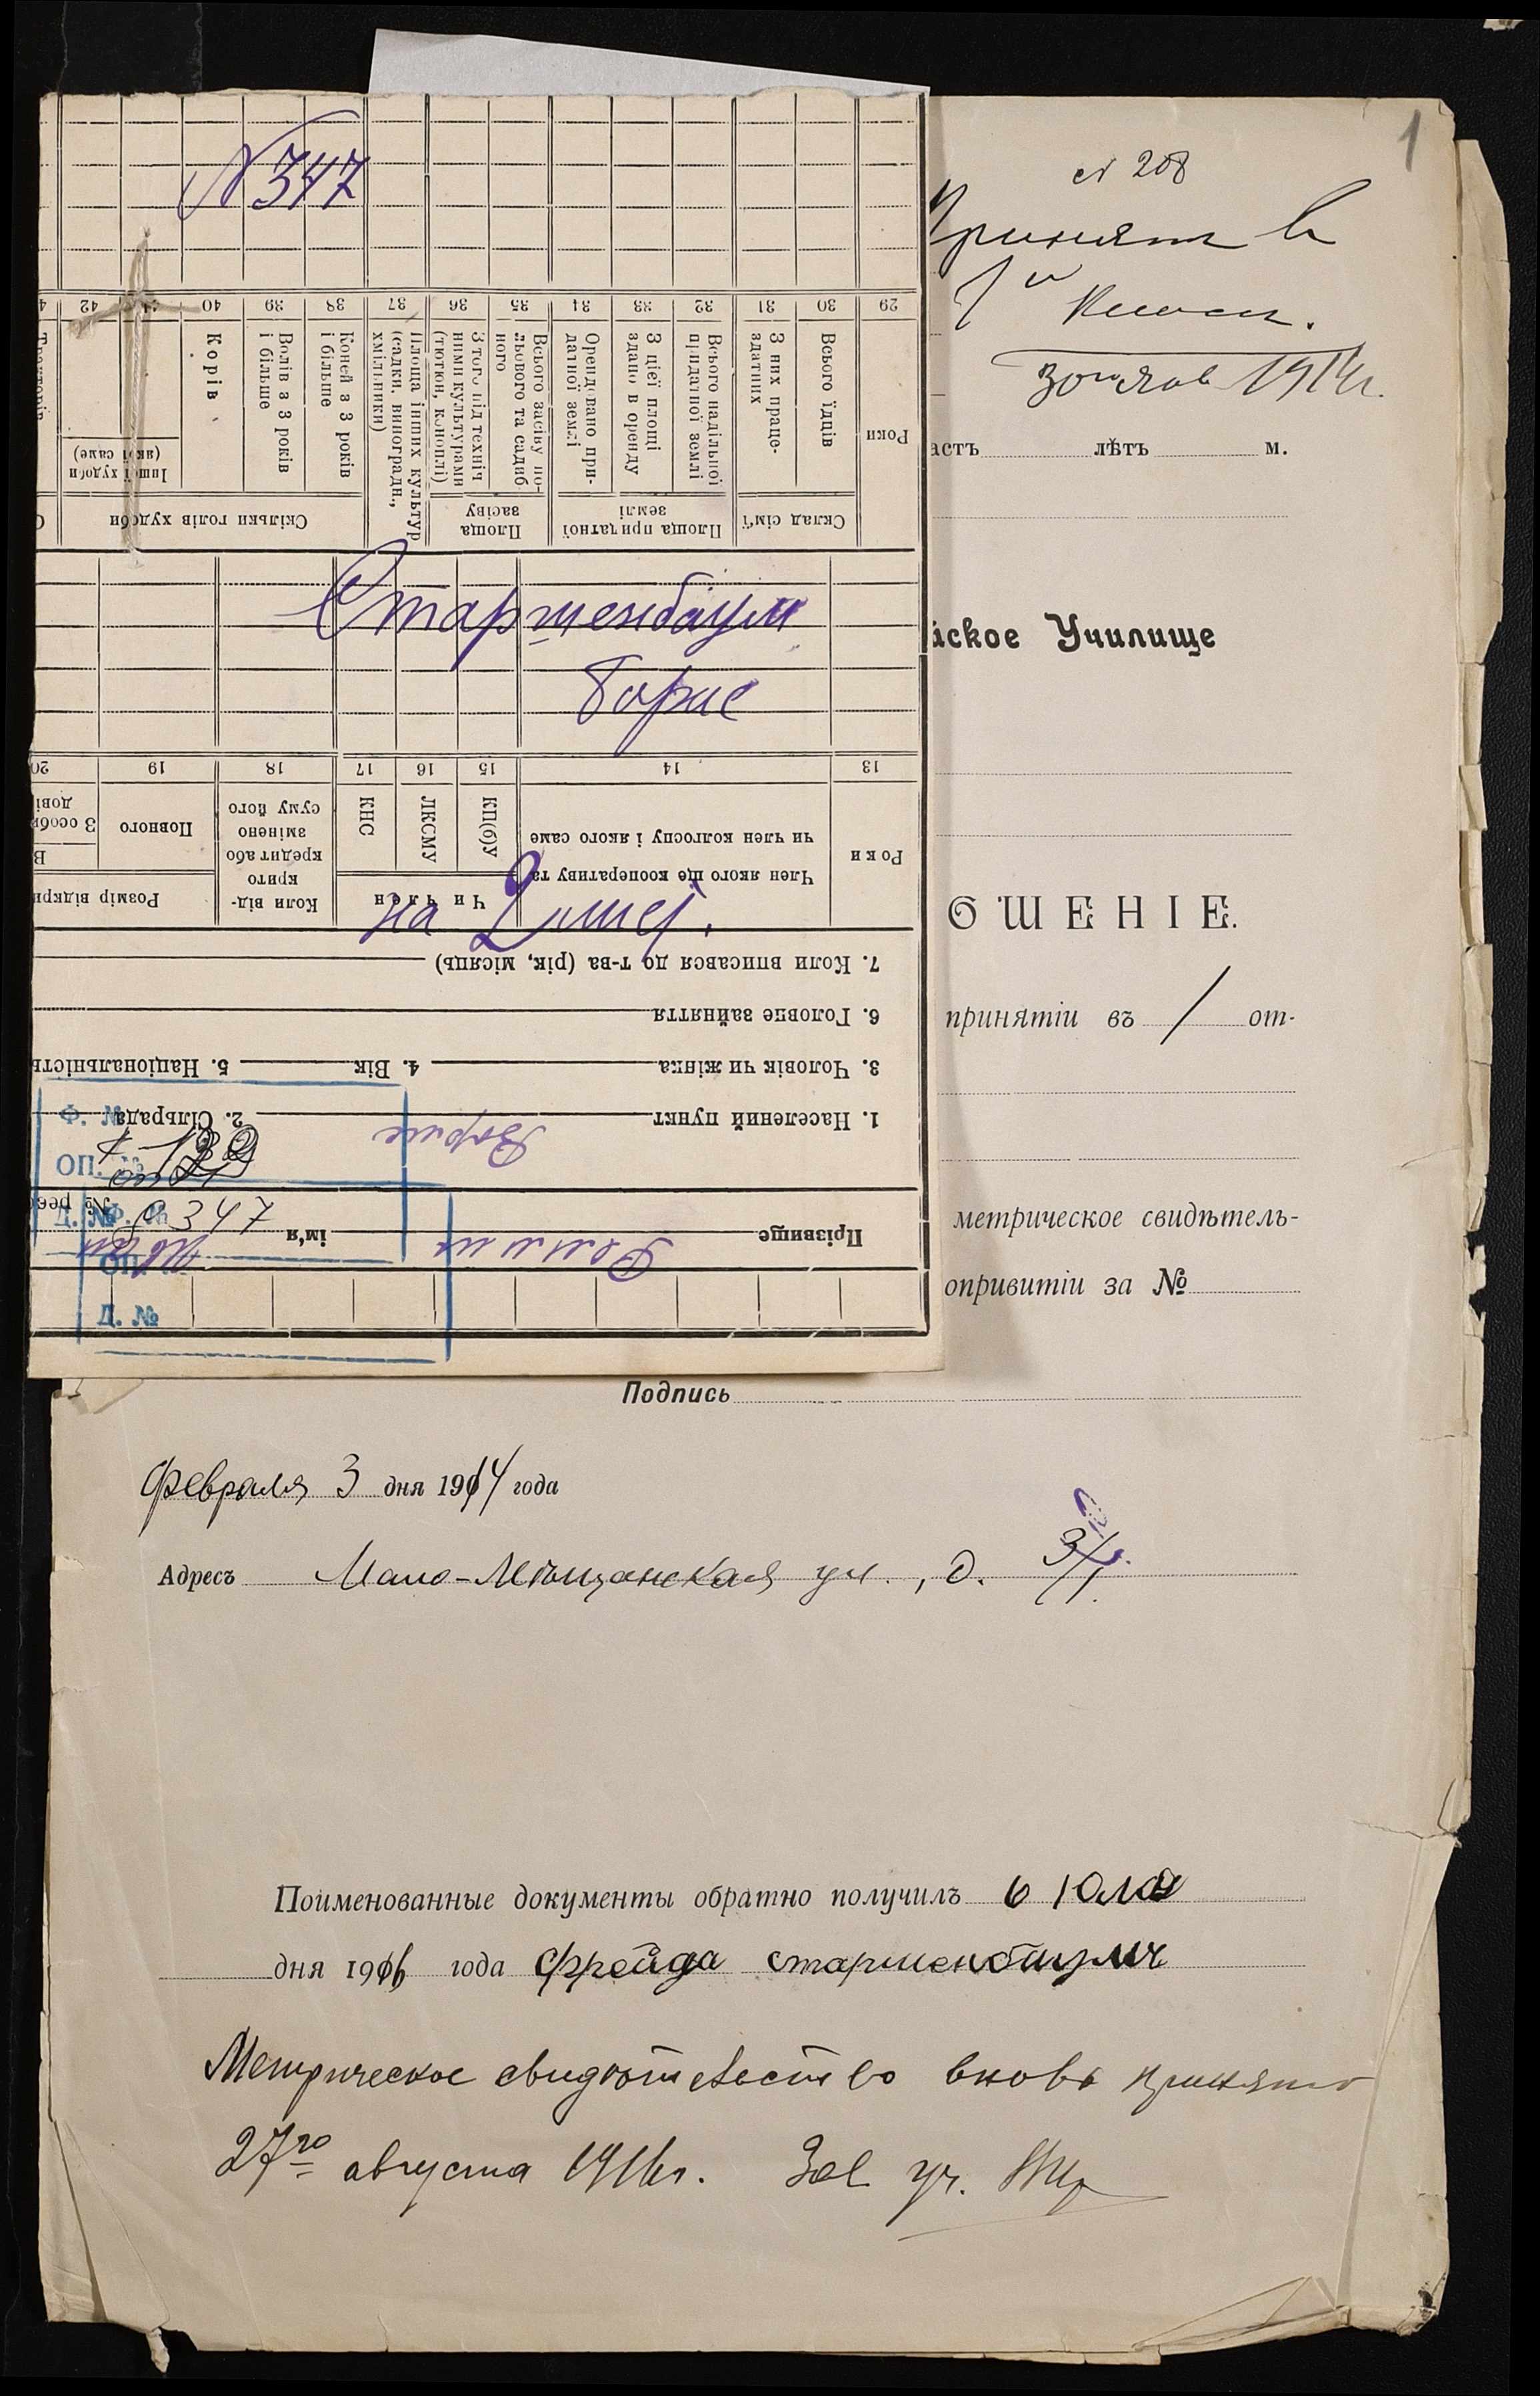 1
№ 208
Принят в
1й класс.
30го Янв 1914 г.
астъ лѣтъ м.
йское Училище
ОШЕНІЕ.
принятіи въ 1 от-
метрическое свидѣтель-
опривитіи за №
Подпись
Февраля 3 дня 1914 года
Адресъ Мало-Мѣщанская ул., д.
Поименованные документы обратно получилъ 6 Юля
дня 1916 года Фрейда старшенбаумъ
Метрическое свидѣтельство вновь принято
27го августа 1916 г. Зав. уч.
N 347
42 40 39 38 37 36 35 34 33 32 31 30 29
Корів
Волів з 3 років і більше
Коней з 3 років і більше
Площа інших культур (садки, виноградн., хмільники)
З того під техніч ними культурами (тютюн, коноплі)
Всього засіву польового та садибного
Орендовано придатної землі
З цієї площі здано в оренду
Всього надільної придатної землі
З них праце-здатних
Всього їдців
Роки
Іншої худоби (якої саме)
Скільки голів худоби
Площа засіву
Площа придатної землі
Склад сім'ї
Старшенбаум
Борис
20 19 18 17 16 15 14 13
Повного
Коли від-крито кредит або змінено суму його
КНС
ЛКСМУ
КП(б)У
Член якого ще кооперативу та чи член колгоспу і якого саме
Роки
Розмір відкри
Чи член
на 2 лист.
7. Коли вписався до т-ва (рік, місяць)
6. Головне зайняття
3. Чоловік чи жінка 4. Вік 5. Національність
1. Населений пункт 2. Сільрада
Ф. №
ОП. №
Прізвище ім'я № реє
Д. № 347
Д. №